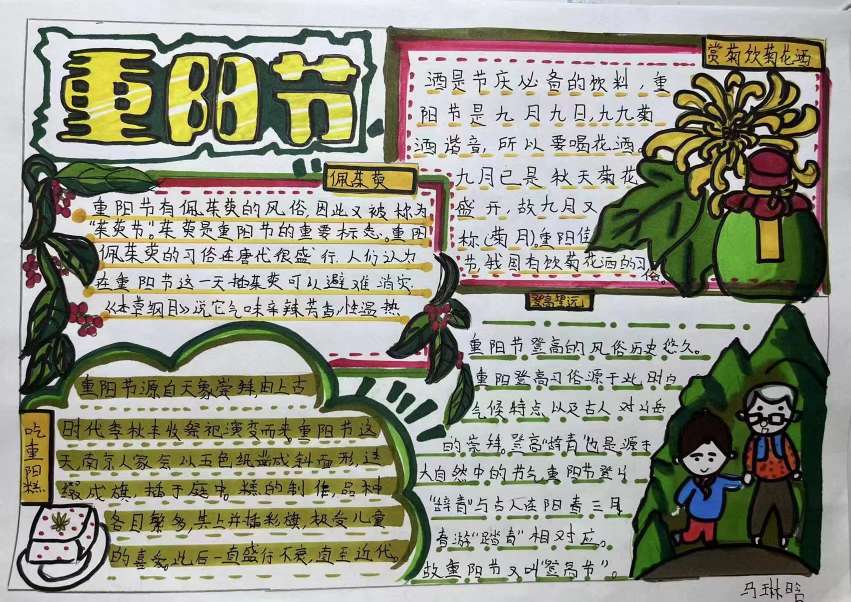 重阳节
赏菊饮菊花酒
酒是节庆必备的饮料，重
阳节是九月九日，九九菊
酒谐音，所以要喝花酒。
九月已是秋天菊花
盛开，故九月又
称(菊月)，重阳佳
节，我国有饮菊花酒的习
俗。
佩茱萸
重阳节有佩茱萸的风俗，因此又被称为
“茱萸节”。茱萸是重阳节的重要标志。重阳
佩茱萸的习俗在唐代很盛行，人们认为
在重阳节这一天插茱萸可以避难消灾
《本草纲目》说它气味辛辣芳香，性温热
登高望远
重阳节登高的风俗历史悠久。
重阳登高习俗源于此时的
气候特点以及古人对山岳
的崇拜。登高“辞青”也是源于
大自然中的节气，重阳节登山
“辞青”与古人在阳春三月
春游“踏青”相对应。
故重阳节又叫“登高节”。
吃重阳糕
重阳节源自天象崇拜，由上古
时代季秋丰收祭祀演变而来重阳节这
天，南京人家会以五色纸凿成斜面形，连
缀成旗，插于庭中。糕的制作，品种
各目繁多，其上并插彩旗，极受儿童
的喜爱。此后一直盛行不衰，直至近代。
马琳晗